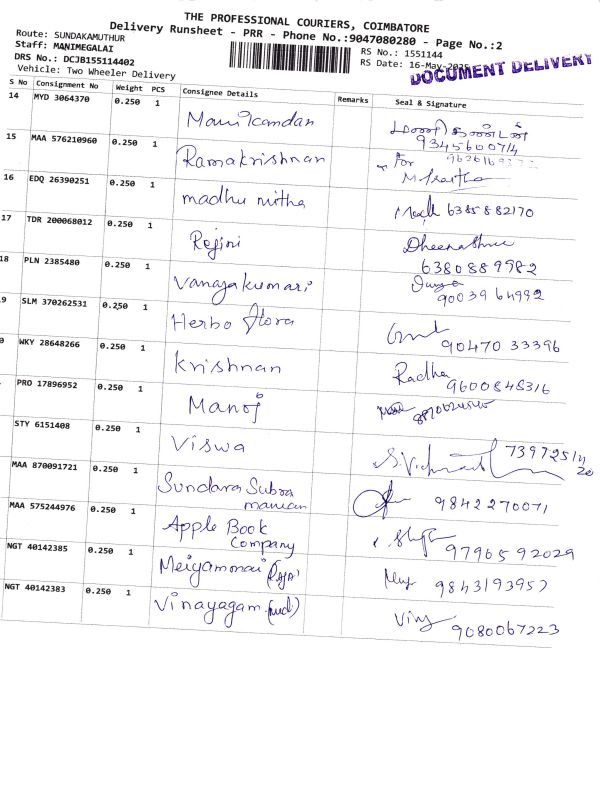 THE PROFESSIONAL COURIERS, COIMBATORE
Delivery Runsheet - PRR - Phone No.:9047080280 - Page No.:2
Route: SUNDAKAMUTHUR
Staff: MANIMEGALAI
RS No.: 1551144
DRS No.: DCJB155114402
RS Date: 16-May-2025
DOCUMENT DELIVERY
Vehicle: Two Wheeler Delivery
S No Consignment No Weight PCS Consignee Details Remarks Seal & Signature
14 MYD 3064370 0.250 1 Manikandan மணிகண்டன்
9345600714
15 MAA 576210960 0.250 1 Ramakrishnan For
16 EDQ 26390251 0.250 1 madhu mitha 6385882170
17 TDR 200068012 0.250 1 Rejini
6380889982
18 PLN 2385480 0.250 1 Vanajakumari
9003964992
9 SLM 370262531 0.250 1 Herbo flora
90470 33396
0 WKY 28648266 0.250 1 Krishnan Radha
9600848316
PRO 17896952 0.250 1 Manoj
STY 6151408 0.250 1 Viswa
MAA 870091721 0.250 1 Sundara Subra
manian 9842270071
MAA 575244976 0.250 1 Apple Book
Company 9796592029
NGT 40142385 0.250 1 Meiyammai
NGT 40142383 0.250 1 Vinayagam
9080067223